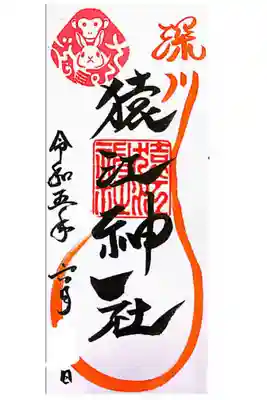 深川
猿江神社
令和五年 六月 日